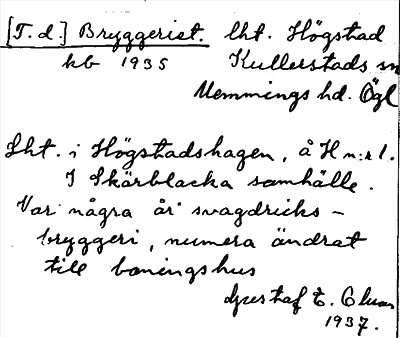 [T.d.] Bryggeriet. lht. Högstad
kb 1935 Kullerstads sn
Memmings hd. Ögl
Lht. i Högstadshagen, å H n:r 1.
I Skärblacka samhälle.
Var några år svagdricks-
bryggeri, numera ändrat
till boningshus
Gustaf E.
1937.